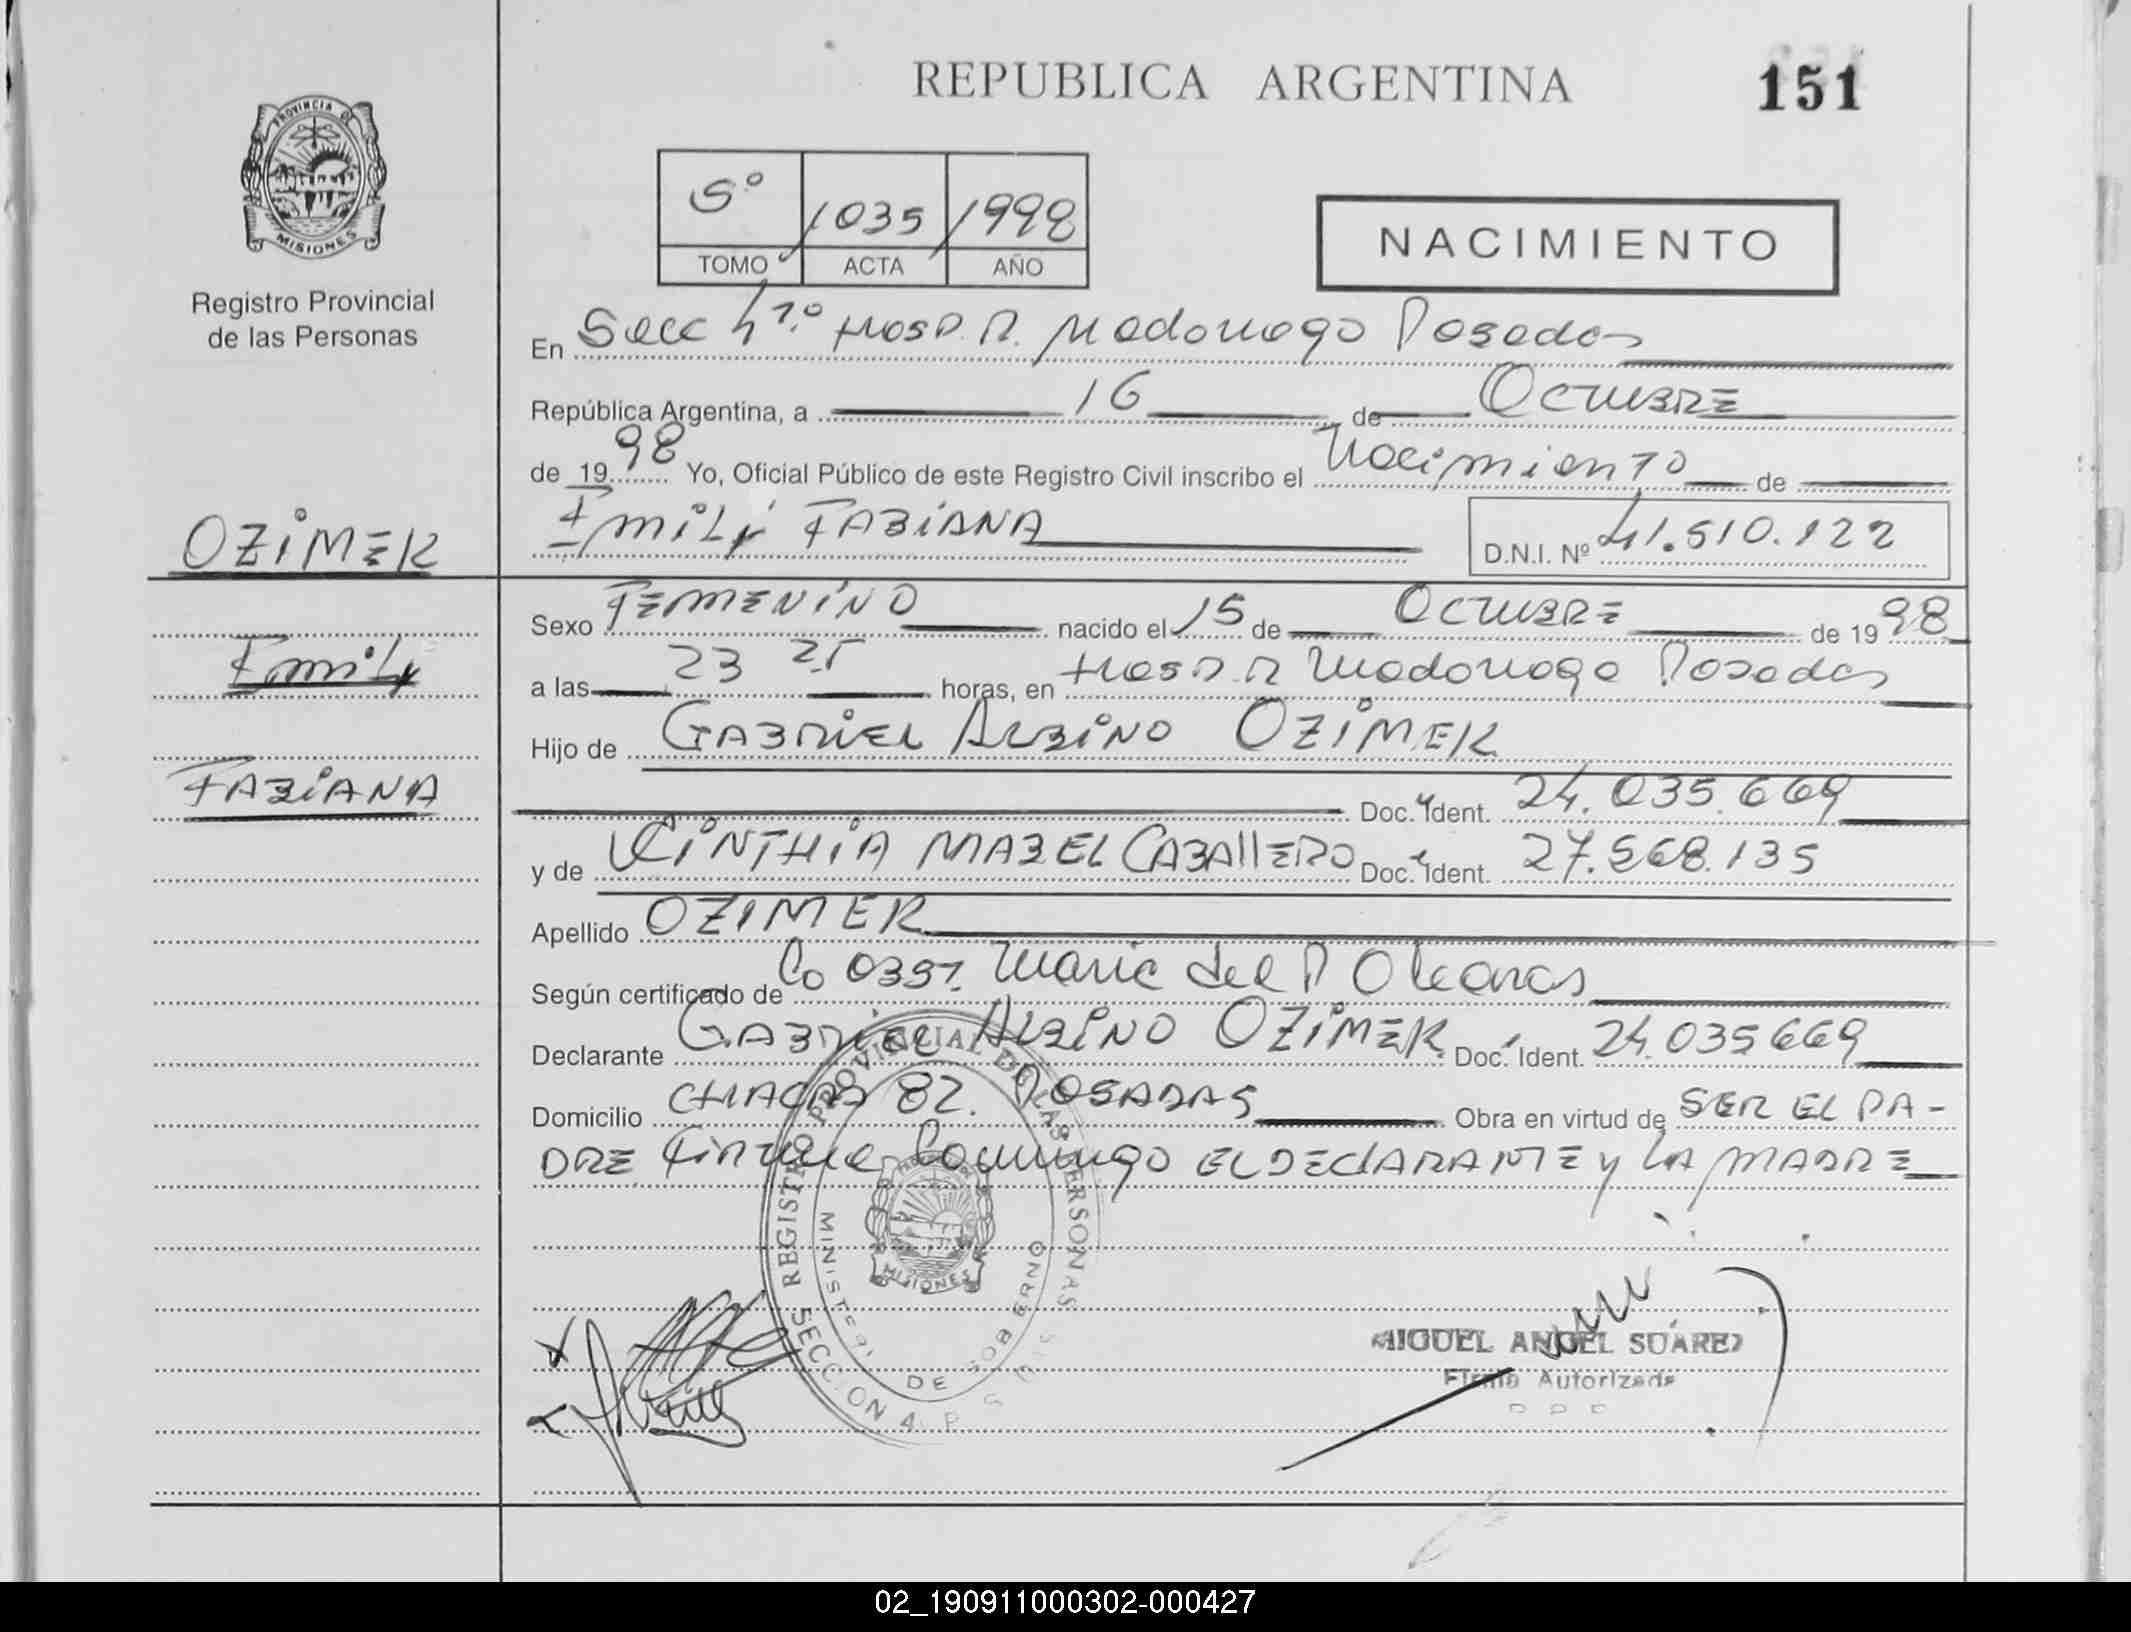 REPUBLICA ARGENTINA
151
PROVINCIA DE
MISIONES
Registro Provincial
de las Personas
5º 1035 1998
TOMO ACTA AÑO
NACIMIENTO
En Secc 4ª Hosp. R. Madariaga Posadas
República Argentina, a 16 de Octubre
de 1998 Yo, Oficial Público de este Registro Civil inscribo el Nacimiento de
Emily Fabiana
D.N.I. Nº 41.510.122
OZIMEK
Emily
FABIANA
Sexo FEMENINO nacido el 15 de OCTUBRE de 1998
a las 23 25 horas, en Hosp. R Madariaga Posadas
Hijo de GABRIEL ALBINO OZIMEK
Doc. Ident. 24.035.669
y de CINTHIA MABEL CABALLERO Doc. Ident. 27.568.135
Apellido OZIMEK
Según certificado de Obst. Maria del
Declarante GABRIEL ALBINO OZIMEK Doc. Ident. 24.035669
Domicilio CHACRA 82. POSADAS Obra en virtud de SER EL PA-
DRE Firma Conmigo EL DECLARANTE y LA MADRE
REGISTRO PROVINCIAL DE LAS PERSONAS
MINISTERI DE GOBIERNO
MISIONES
SECCION 4
MIGUEL ANGEL SUAREZ
Firma Autorizada
02_190911000302-000427